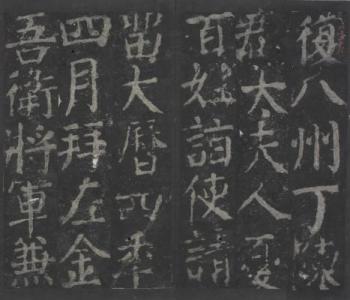 復八州丁陳
郡大夫人憂
百姓詣使請
留大曆四年
四月拜左金
吾衛將軍兼